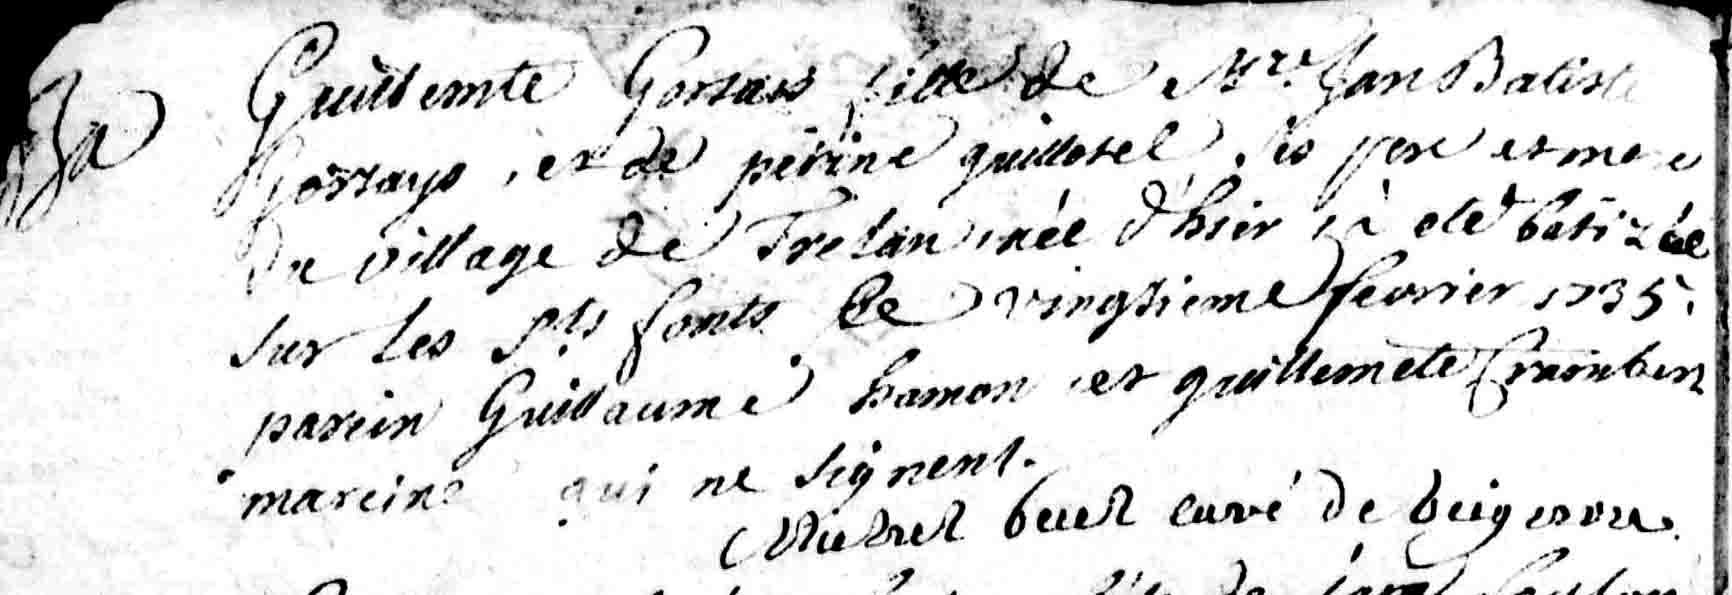 Guillemte Gorrays fille de Mre Jan Batiste
Gorrays, et de perine guillotel, ses pere et mere
du village de Trelan née d'hier, a eté batizée
sur les Sts fonts le vingtieme fevrier 1735,
parein Guillaume hamon et guillemete
mareine qui ne signent.
Michel buel curé de